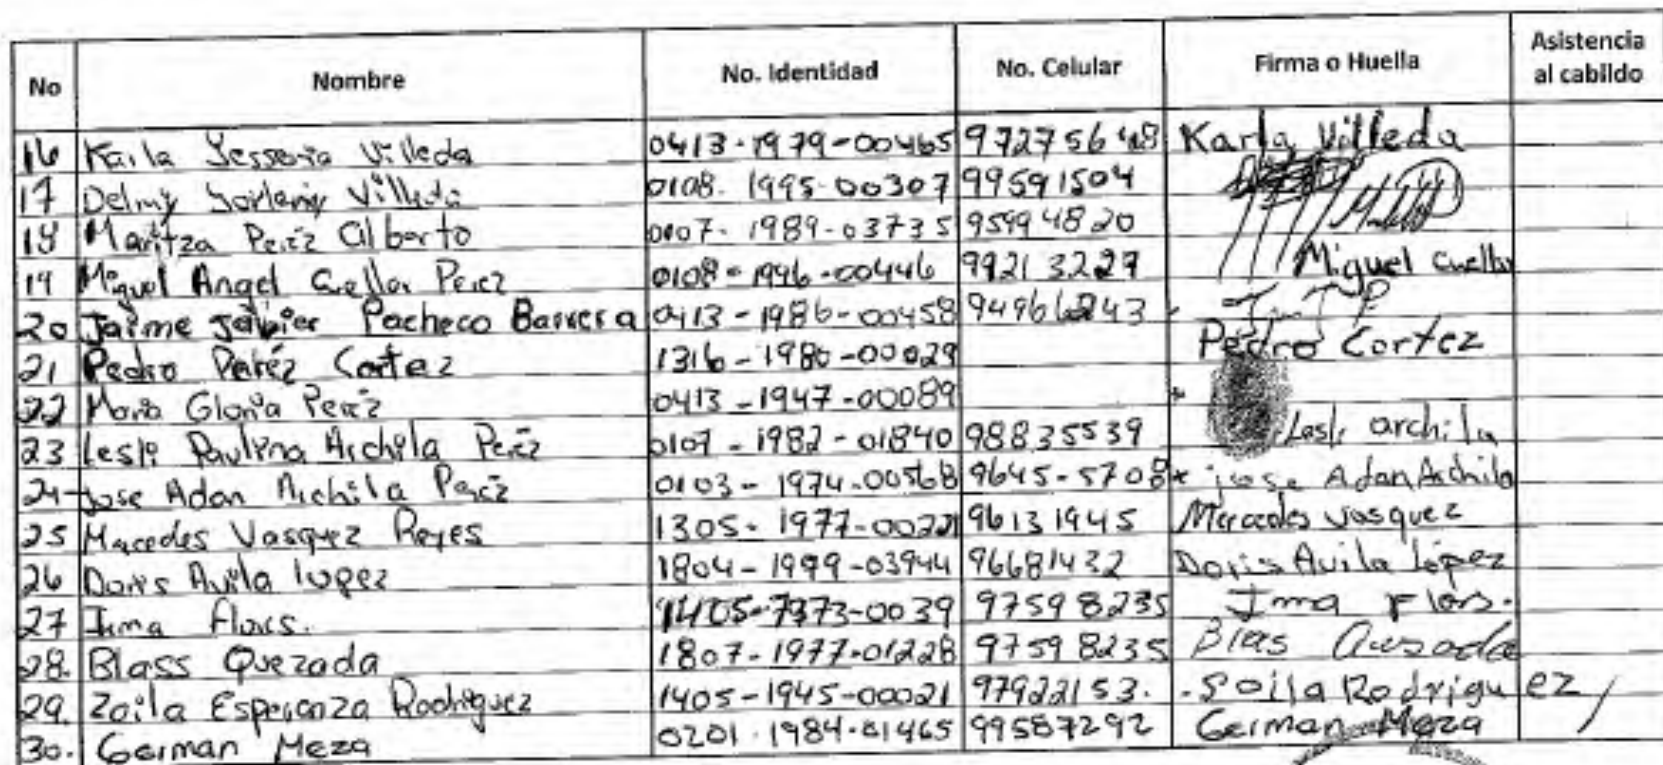 No Nombre No. Identidad No. Celular Firma o Huella Asistencia al cabildo
16 Karla Yessenia Villeda 0413-1979-00465 97275648 Karla Villeda
17 Delmy Yorleny Villeda 0108-1995-00307 99591504
18 Maritza Peréz Alberto 0107-1989-03735 95994820
19 Miguel Angel Cuellar Peréz 0108-1996-00446 99213227 Miguel Cuellar
20 Jaime Javier Pacheco Barrera 0413-1986-00458
21 Pedro Peréz Cortez 1316-1980-00029 Pedro Cortez
22 Maria Gloria Peréz 0413-1947-00089
23 Lesli Paulina Archila Peréz 0107-1982-01840 98835539 Lesli archila
24 Jose Adan Archila Peréz 0103-1974-00568 9645-5708 * jose Adan Archila
25 Mercedes Vasquez Reyes 1305-1977-00221 96131945 Mercedes Vasquez
26 Doris Avila lopez 1804-1979-03944 96681432 Doris Avila lópez
27 Irma Flores. 97598235 Irma Flors.
28. Blass Quezada 1807-1977-01228 97598235 Blas Quezada
29. Zoila Esperanza Rodriguez 1405-1945-00021 97922153. Soila Rodriguez
30. German Meza 0201-1984-01465 99587292 German Meza